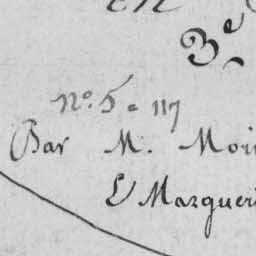 en
3e
No. 5 = 117
Par M. Moi
& Margueri